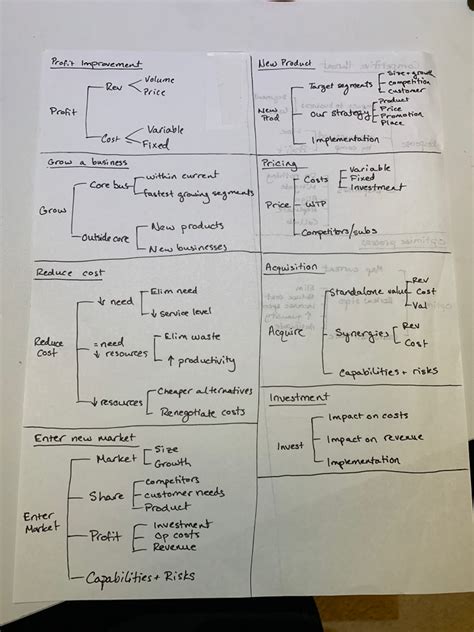 Profit Improvement
Profit
Rev
Volume
Price
Cost
Variable
Fixed
Grow a business
Grow
Core bus
within current
fastest growing segments
Outside core
New products
New businesses
Reduce cost
Reduce
Cost
↓ need
Elim need
↓ service level
= need
↓ resources
Elim waste
↑ productivity
↓ resources
Cheaper alternatives
Renegotiate costs
Enter new market
Enter
Market
Market
Size
Growth
Share
competitors
customer needs
Product
Profit
Investment
Op costs
Revenue
Capabilities + Risks
New Product
New
Prod
Target segments
Size + growth
competition
customer
Our strategy
Product
Price
Promotion
Place
Implementation
Pricing
Price
Costs
Variable
Fixed
Investment
WTP
Competitors/subs
Acquisition
Acquire
Standalone value
Rev
Cost
Val
Synergies
Rev
Cost
Capabilities + risks
Investment
Invest
Impact on costs
Impact on revenue
Implementation